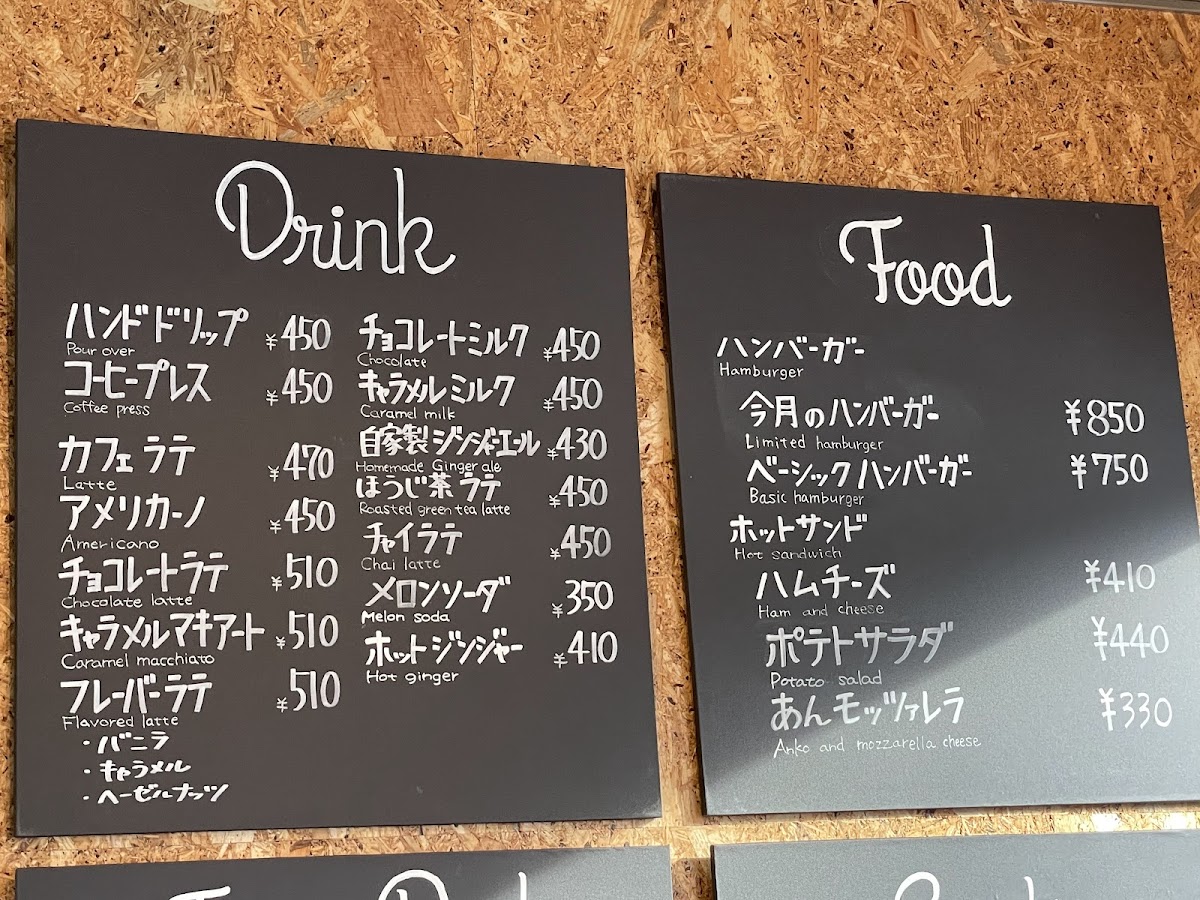 Drink
ハンドドリップ ¥450
Pour over
コーヒープレス ¥450
Coffee press
カフェラテ ¥470
Latte
アメリカーノ ¥450
Americano
チョコレートラテ ¥510
Chocolate latte
キャラメルマキアート ¥510
Caramel macchiato
フレーバーラテ ¥510
Flavored latte
・バニラ
・キャラメル
・ヘーゼルナッツ
チョコレートミルク ¥450
Chocolate
キャラメルミルク ¥450
Caramel milk
自家製ジンジャーエール ¥430
Homemade Ginger ale
ほうじ茶ラテ ¥450
Roasted green tea latte
チャイラテ ¥450
Chai latte
メロンソーダ ¥350
Melon soda
ホットジンジャー ¥410
Hot ginger
Food
ハンバーガー
Hamburger
今月のハンバーガー ¥850
Limited hamburger
ベーシックハンバーガー ¥750
Basic hamburger
ホットサンド
Hot sandwich
ハムチーズ ¥410
Ham and cheese
ポテトサラダ ¥440
Potato salad
あんモッツァレラ ¥330
Anko and mozzarella cheese